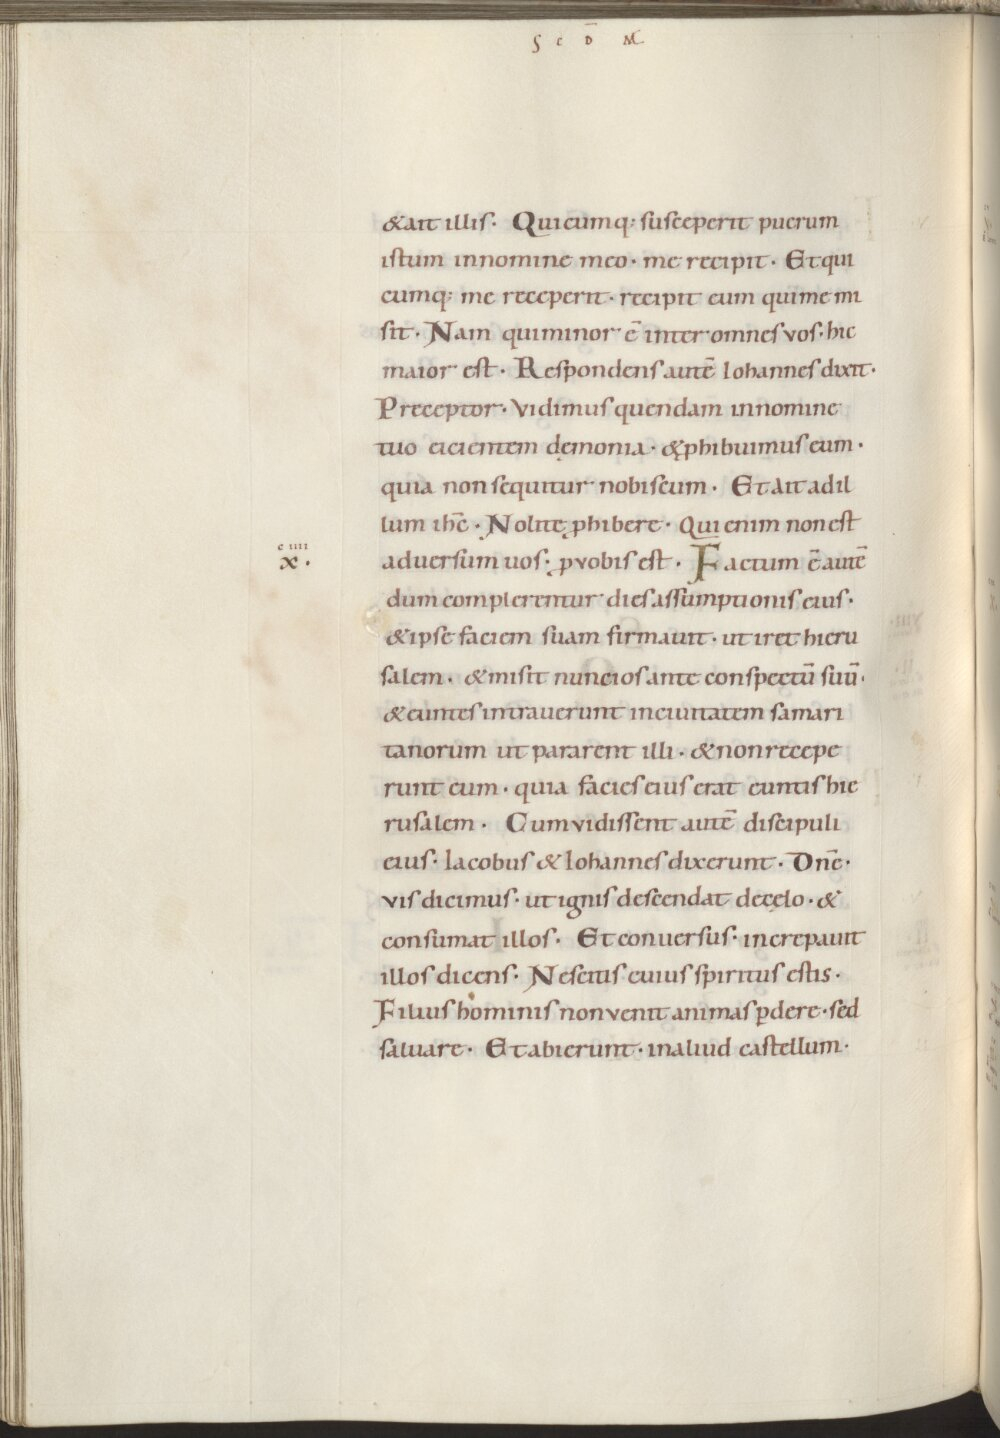 S C D̄ M
&ait illis. Quicumq; susceperit puerum
istum innomine meo. me recipit. Et qui
cumq; me receperit. recipit eum quime mi
sit. Nam quiminor ē inter omnes vos. hic
maior est. Respondens autē Iohannes dixit.
Preceptor. vidimus quendam innomine
tuo eicientem demonia. &ꝓhibuimus eum.
quia non sequitur nobiscum. Et ait ad il
lum ihc̄. Nolite ꝓhibere. Qui enim non est
c iiii
x.
adversum uos. ꝓvobis est. Factum ē autē
dum complerentur dies assumptionis eius.
&ipse faciem suam firmavit. ut iret hieru
salem. &misit nuncios ante conspectū suū.
&euntes intraverunt incivitatem samari
tanorum ut pararent illi. &non recepe
runt eum. quia facies eius erat euntis hie
rusalem. Cum vidissent autē discipuli
eius. Iacobus & Iohannes dixerunt. Dn̄e.
vis dicimus. ut ignis descendat decęlo. &
consumat illos. Et conversus. increpavit
illos dicens. Nescitis cuius spiritus estis.
Filius hominis non venit animas ꝑdere. sed
salvare. Et abierunt. inaliud castellum.